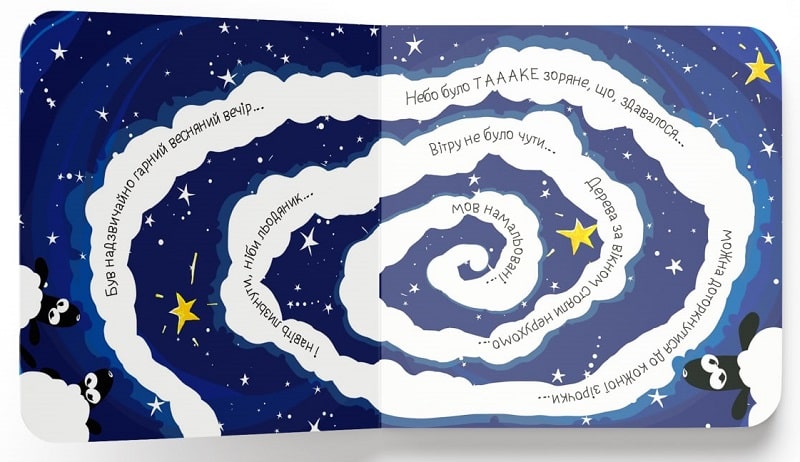 Був надзвичайно гарний весняний вечір...
Небо було ТАААКЕ зоряне, що, здавалося...
можна доторкнутися до кожної зірочки...
І навіть лизьнути, ніби льодяник...
Вітру не було чути...
Дерева за вікном стояли нерухомо...
мов намальовані...